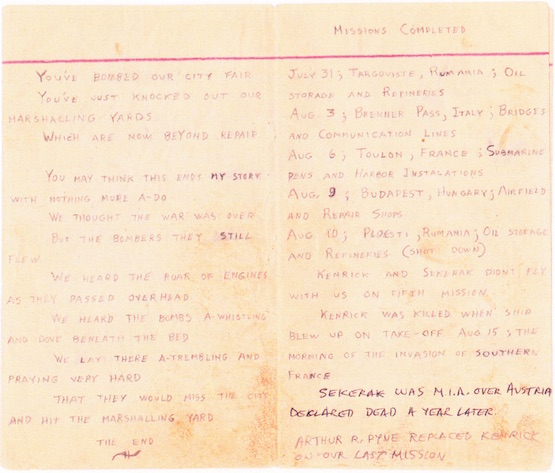 You've bombed our city fair
You've just knocked out our
marshalling yards
Which are now beyond repair.
You may think this ends my story
with nothing more a-do
We thought the war was over
But the bombers they still
flew
We heard the roar of engines
as they passed overhead
We heard the bombs a-whistling
and dove beneath the bed
We lay there a-trembling and
praying very hard
That they would miss the city
and hit the marshalling yard
The End
Missions Completed
July 31; Targoviste, Rumania; Oil
storage and Refineries
Aug. 3; Brenner Pass, Italy; Bridges
and Communication Lines
Aug 6; Toulon, France; Submarine
pens and Harbor Instalations
Aug. 9; Budapest, Hungary; Airfield
and Repair Shops
Aug. 10; Ploesti, Rumania; Oil storage
and Refineries (shot down)
Kenrick and Sekerak didnt fly
with us on fifth mission
Kenrick was killed when ship
blew up on take-off Aug. 15; the
morning of the invasion of southern
France
Sekerak was M.I.A. over Austria
deklared dead a year later.
Arthur R. Pyne replaced Kenrick
on our last mission